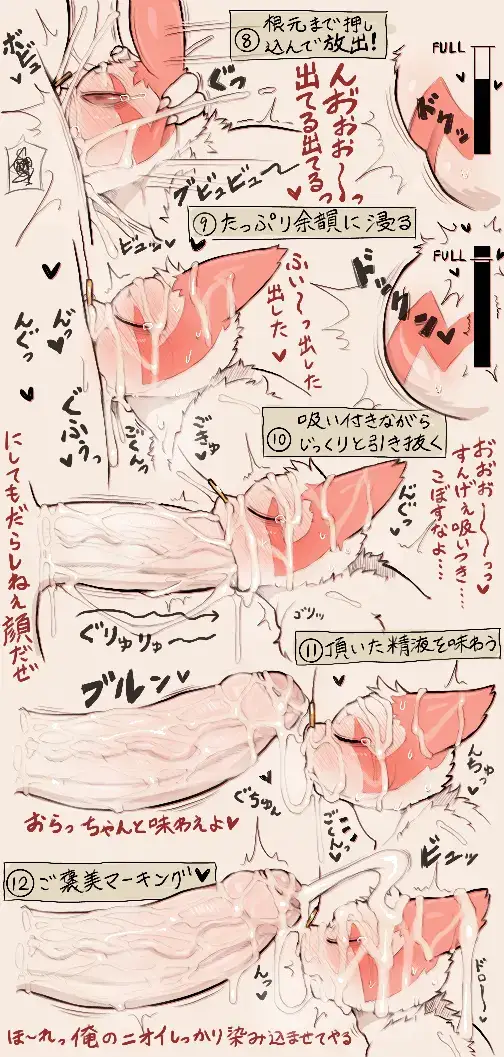 ⑧根元まで押し
込んで放出!
FULL
ボビュッ♥
ぐっ
ズグッ
んおぉぉ~っ
出てる出てるっ♥
グビュビュー
⑨たっぷり余韻に浸る
FULL
ビュッ♥
ドックン♥
ふぃ~っ出した
出した♥
んっ♥
んぐっ
ぐふぅっ
ごくんっ
ごきゅ
⑩吸い付きながら
じっくりと引き抜く
おおお~~っっ♥
すんげぇ吸いつき…
こぼすなよ…
んぐっ
にしてもだらしねぇ顔だぜ
ぐりゅりゅ~
ゴリッ
⑪頂いた精液を味わう
ブルン♥
んちゅっ
ぐちゅん
ごくんっ
おらっちゃんと味わえよ♥
⑫ご褒美マーキング♥
ビュッ
んっ
ドロ~
ほ~れっ俺のニオイしっかり染み込ませてやる